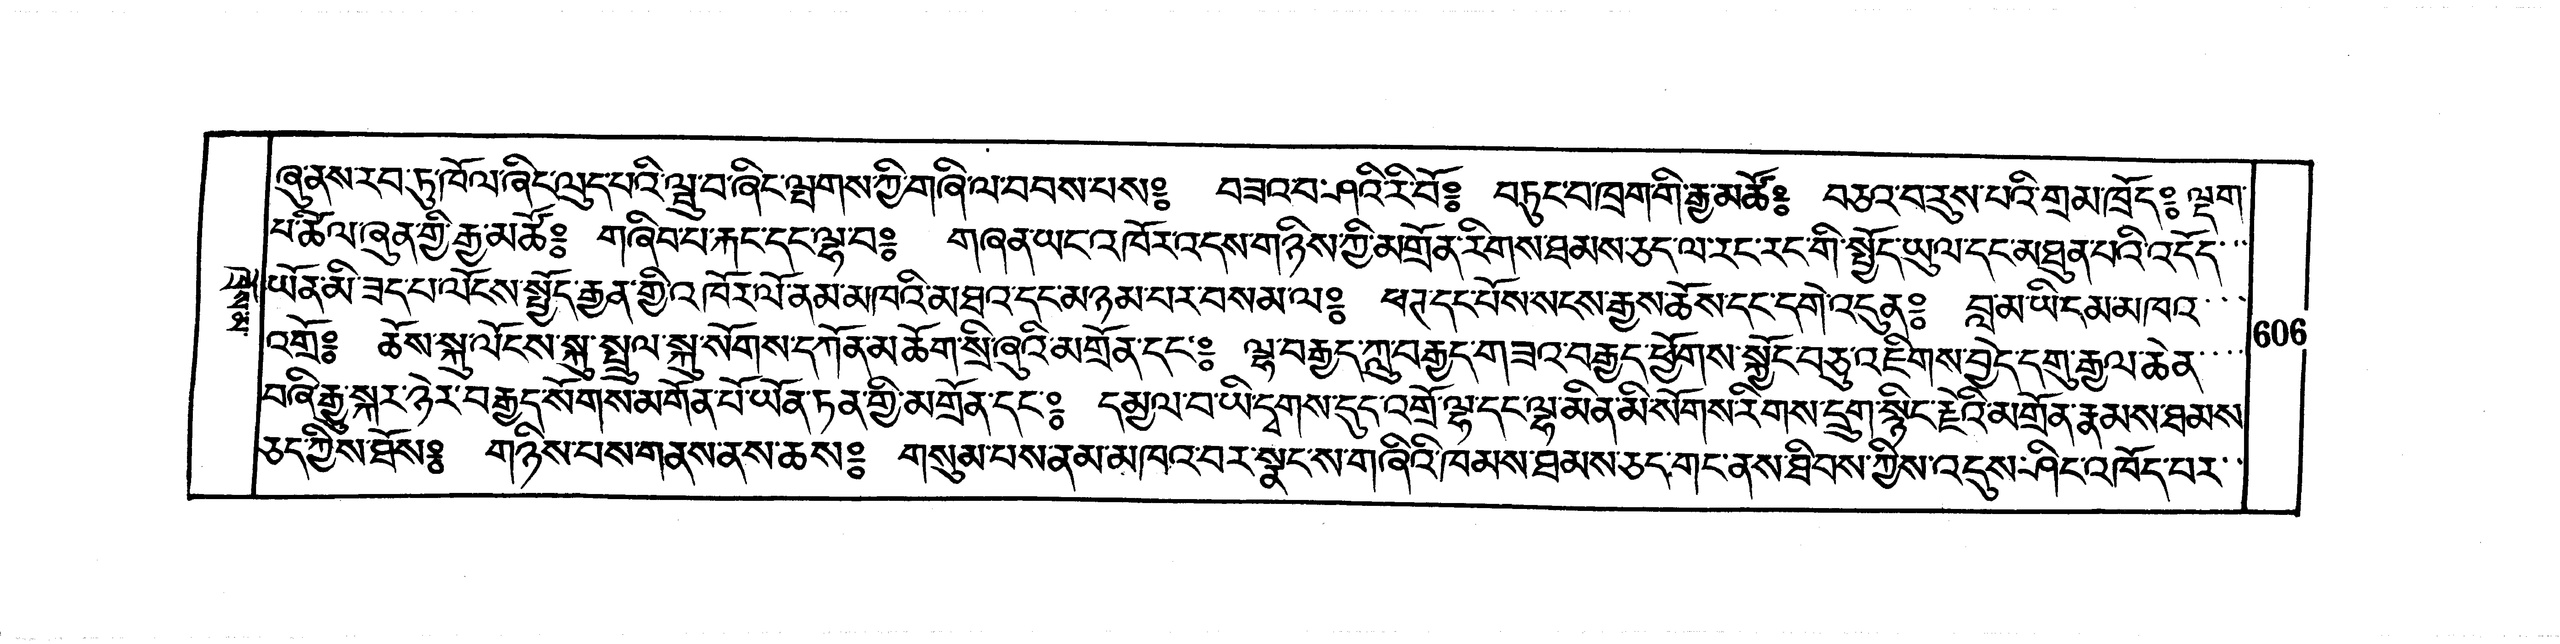 ཞུ་ནས་རབ་ཏུ་ཁོལ་ཞིང་ལུད་པའི་ལྦུ་བ་ཞིང་ལྤགས་ཀྱི་གཞི་ལ་བབས་པས༔ བཟའ་བ་ཤའི་རི་བོ༔ བཏུང་བ་ཁྲག་གི་རྒྱ་མཚོ༔ བཅའ་བ་རུས་པའི་གྲམ་ཁྲོད༔ ལྡག་
པ་ཚིལ་ཞུན་གྱི་རྒྱ་མཚོ༔ གཞིབ་པ་རྐང་དང་ལྷ་བ༔ གཞན་ཡང་འཁོར་འདས་གཉིས་ཀྱི་མགྲོན་རིགས་ཐམས་ཅད་ལ་རང་རང་གི་སྤྱོད་ཡུལ་དང་མཐུན་པའི་འདོད་
ཡོན་མི་ཟད་པ་ལོངས་སྤྱོད་རྒྱན་གྱི་འཁོར་ལོ་ནམ་མཁའི་མཐའ་དང་མཉམ་པར་བསམ་ལ༔ ཕཊ་དང་པོས་སངས་རྒྱས་ཆོས་དང་དགེ་འདུན༔ བླ་མ་ཡི་དམ་མཁའ་
འགྲོ༔ ཆོས་སྐུ་ལོངས་སྐུ་སྤྲུལ་སྐུ་སོགས་དཀོན་མཆོག་སྲི་ཞུའི་མགྲོན་དང་༔ ལྷ་བརྒྱད་ཀླུ་བརྒྱད་གཟའ་བརྒྱད་ཕྱོགས་སྐྱོང་བཅུ་འཇིགས་བྱེད་དགུ་རྒྱལ་ཆེན་
བཞི་རྒྱུ་སྐར་ཉེར་བརྒྱད་སོགས་མགོན་པོ་ཡོན་ཏན་གྱི་མགྲོན་དང་༔ དམྱལ་བ་ཡི་དྭགས་དུད་འགྲོ་ལྷ་དང་ལྷ་མིན་མི་སོགས་རིགས་དྲུག་སྙིང་རྗེའི་མགྲོན་རྣམས་ཐམས་
ཅད་ཀྱིས་ཐོས༔ གཉིས་པས་གནས་ནས་ཆས༔ གསུམ་པས་ནམ་མཁའ་བར་སྣང་ས་གཞིའི་ཁམས་ཐམས་ཅད་གང་ནས་ཐིབས་ཀྱིས་འདུས་ཤིང་འཁོད་པར་
606